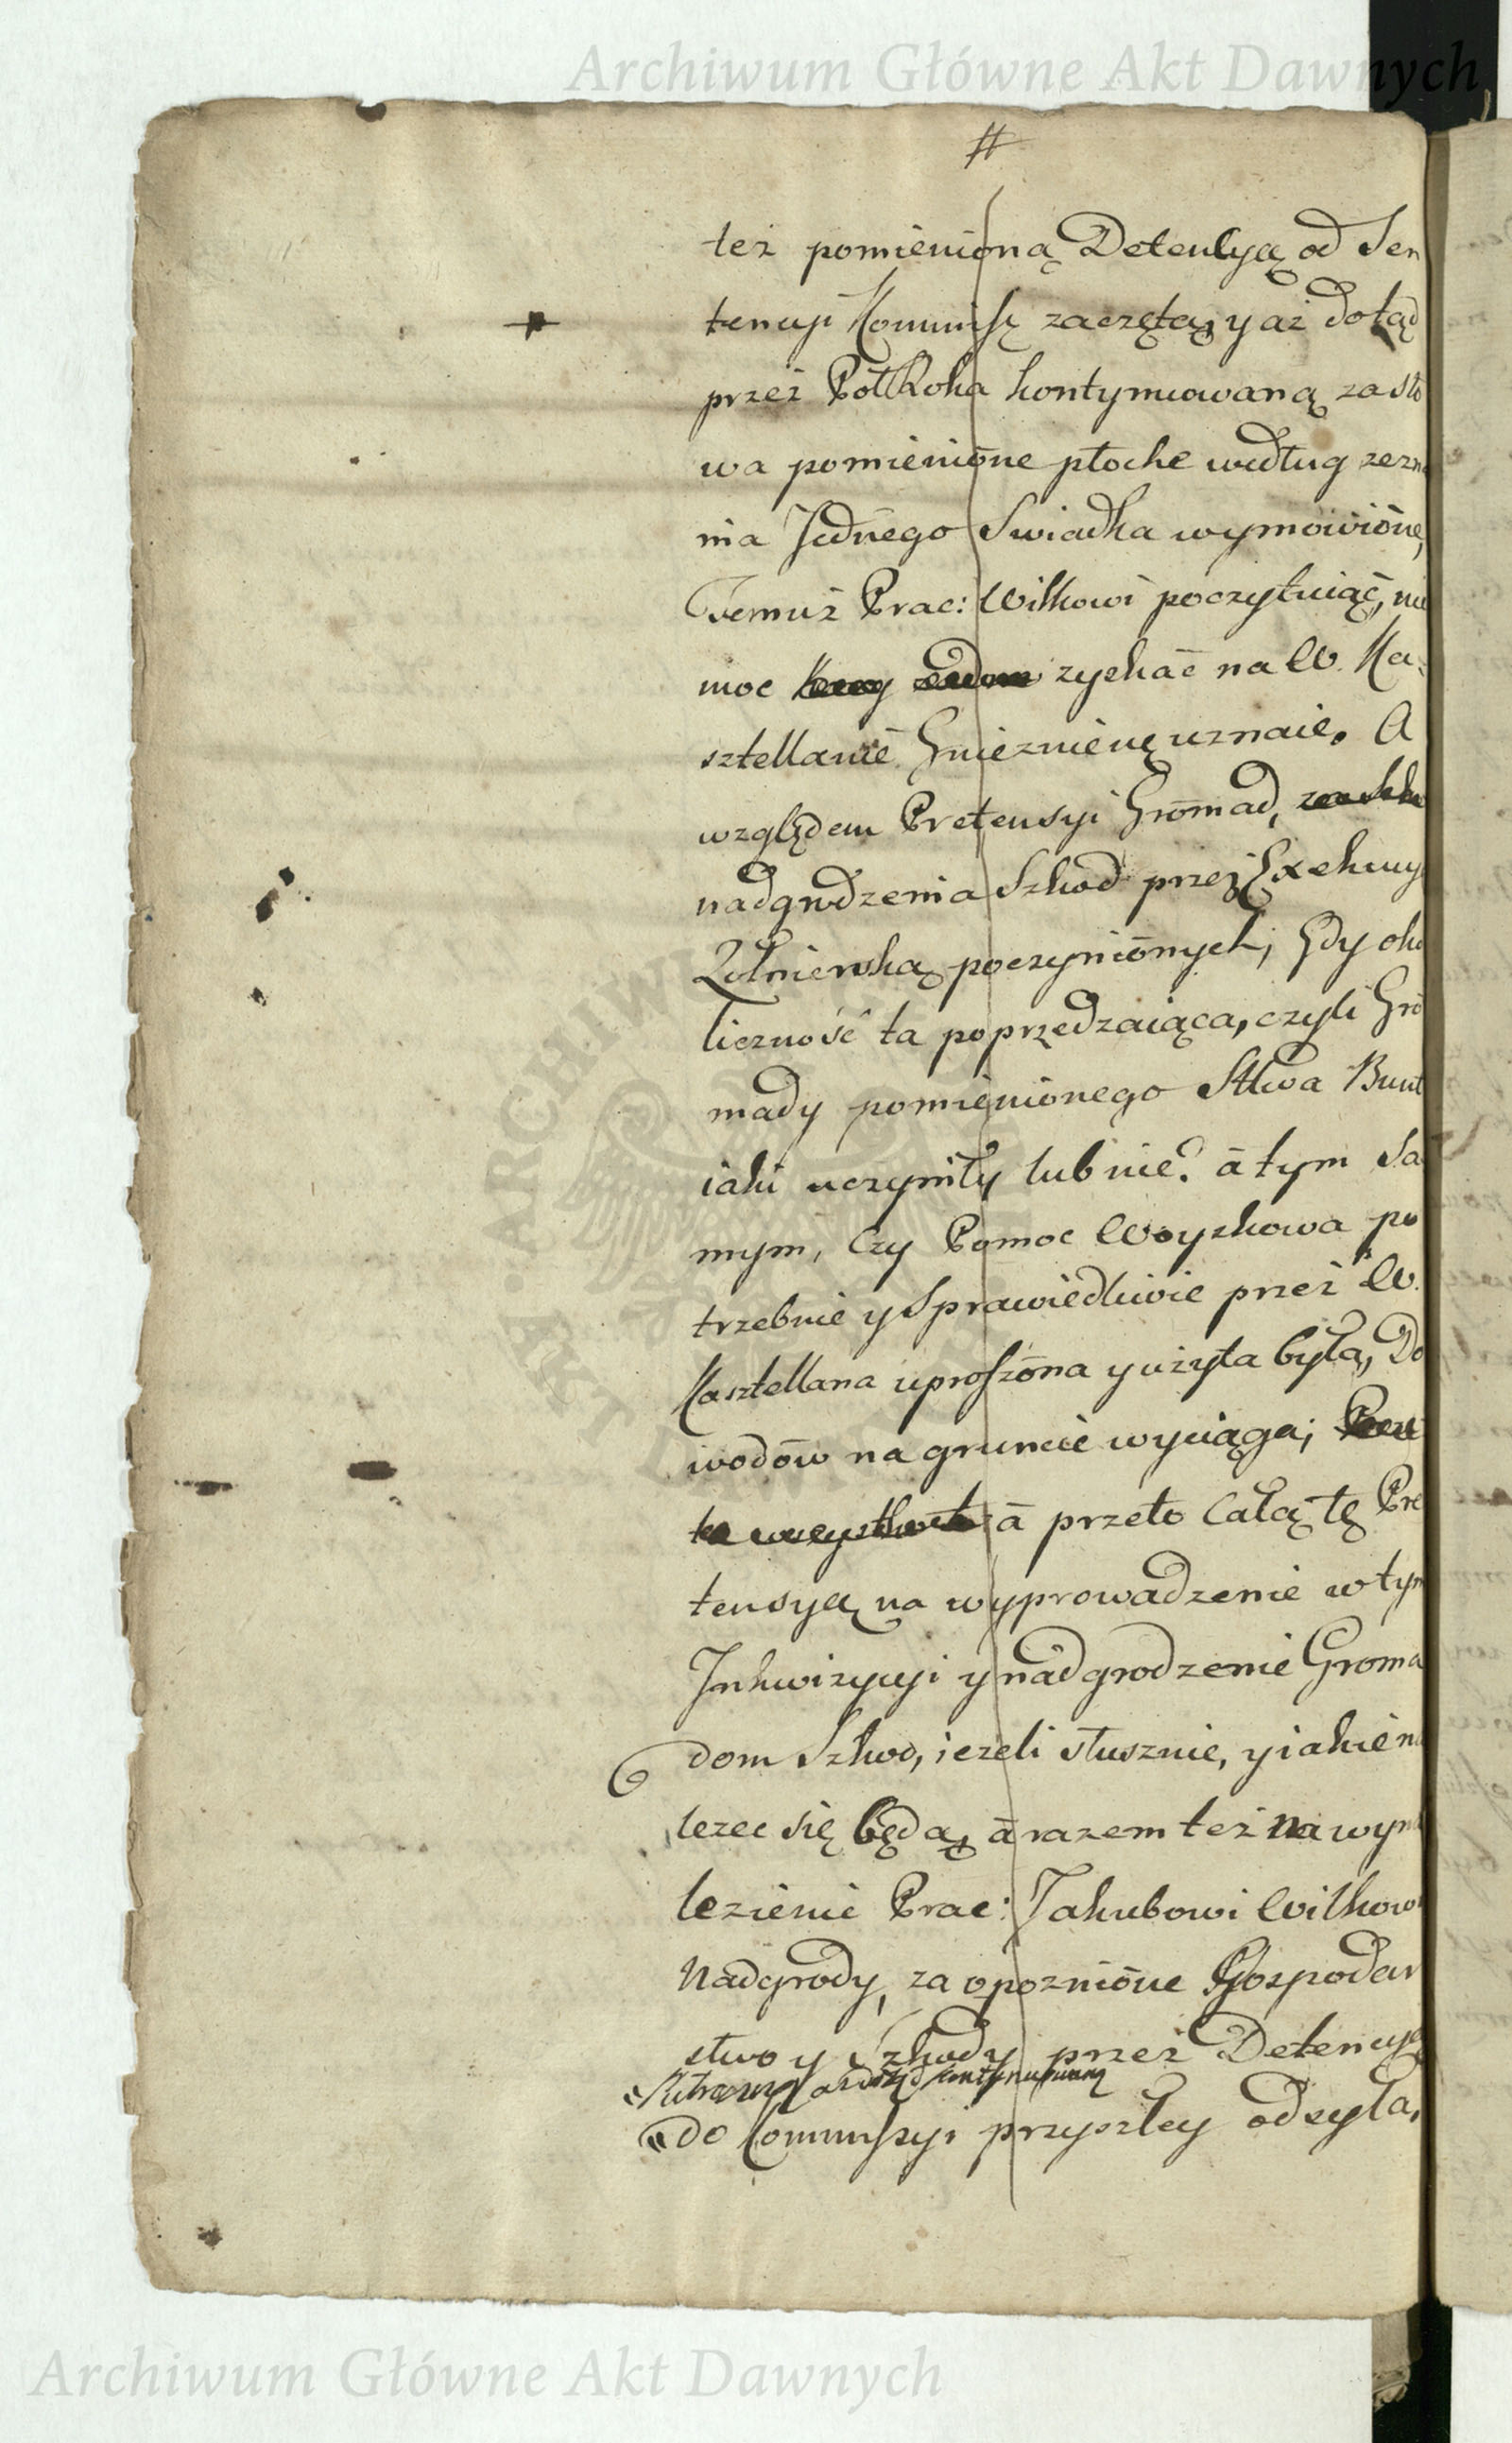 Archiwum Główne Akt Dawnych
#
też pomienioną Detencyą od Sen
tencyi Kommissy zaczętą, y aż dotąd
przez Pół Roka kontynuowaną za sło
wa pomienione płoche według zezna
nia Jednego Swiadka wymowione,
Temuż Prac: Wilkowi poczytuiąc, nie
moc zyskać na W. Ka-
sztellanie Gnieznienę uznaie. A
względem Pretensyi Gromad,
nadgrodzenia Szkod przez Exekucyą
Zołnierską poczynionych, Gdy oko
liczność ta poprzedzaiąca, czyli Gro
mady pomienionego Sttwa Bunt
iaki uczyniły lub nie? a tym sa
mym, Czy Pomoc Woyskowa po
trzebnie y Sprawiedliwie przez W.
Kasztellana uproszona y użyta była, Do
wodow na gruncie wyciąga;
a przeto Całą tę Pre
tensyą na wyprowadzenie w tym
Inkwizycyi y nadgrodzenie Groma
dom Szkod, ieżeli słusznie, y iakie na
lezec się będą, a razem też na wyna
lezienie Prac: Jakubowi Wilkowi
Nadgrody, za opoznione Gospodar
stwo y Szkody przez Detencyą
kontynuowaną
do Kommissyi przyszłey odsyła.
Archiwum Główne Akt Dawnych